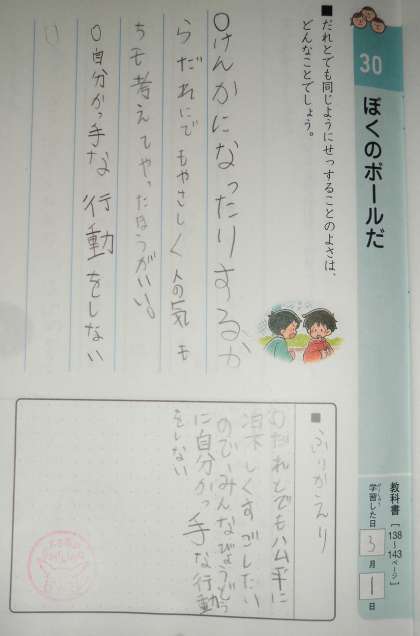 30
ぼくのボールだ
教科書 [138~143ページ]
学習した日 3月1日
■だれとでも同じようにせっすることのよさは、
どんなことでしょう。
○けんかになったりするか
らだれにでもやさしく人の気も
ちを考えてやったほうがいい。
○自分かっ手な行動をしない
■ふりかえり
だれとでも公平に
楽しくすごしたい
のでみんなびょうどう
に自分かっ手な行動
をしない